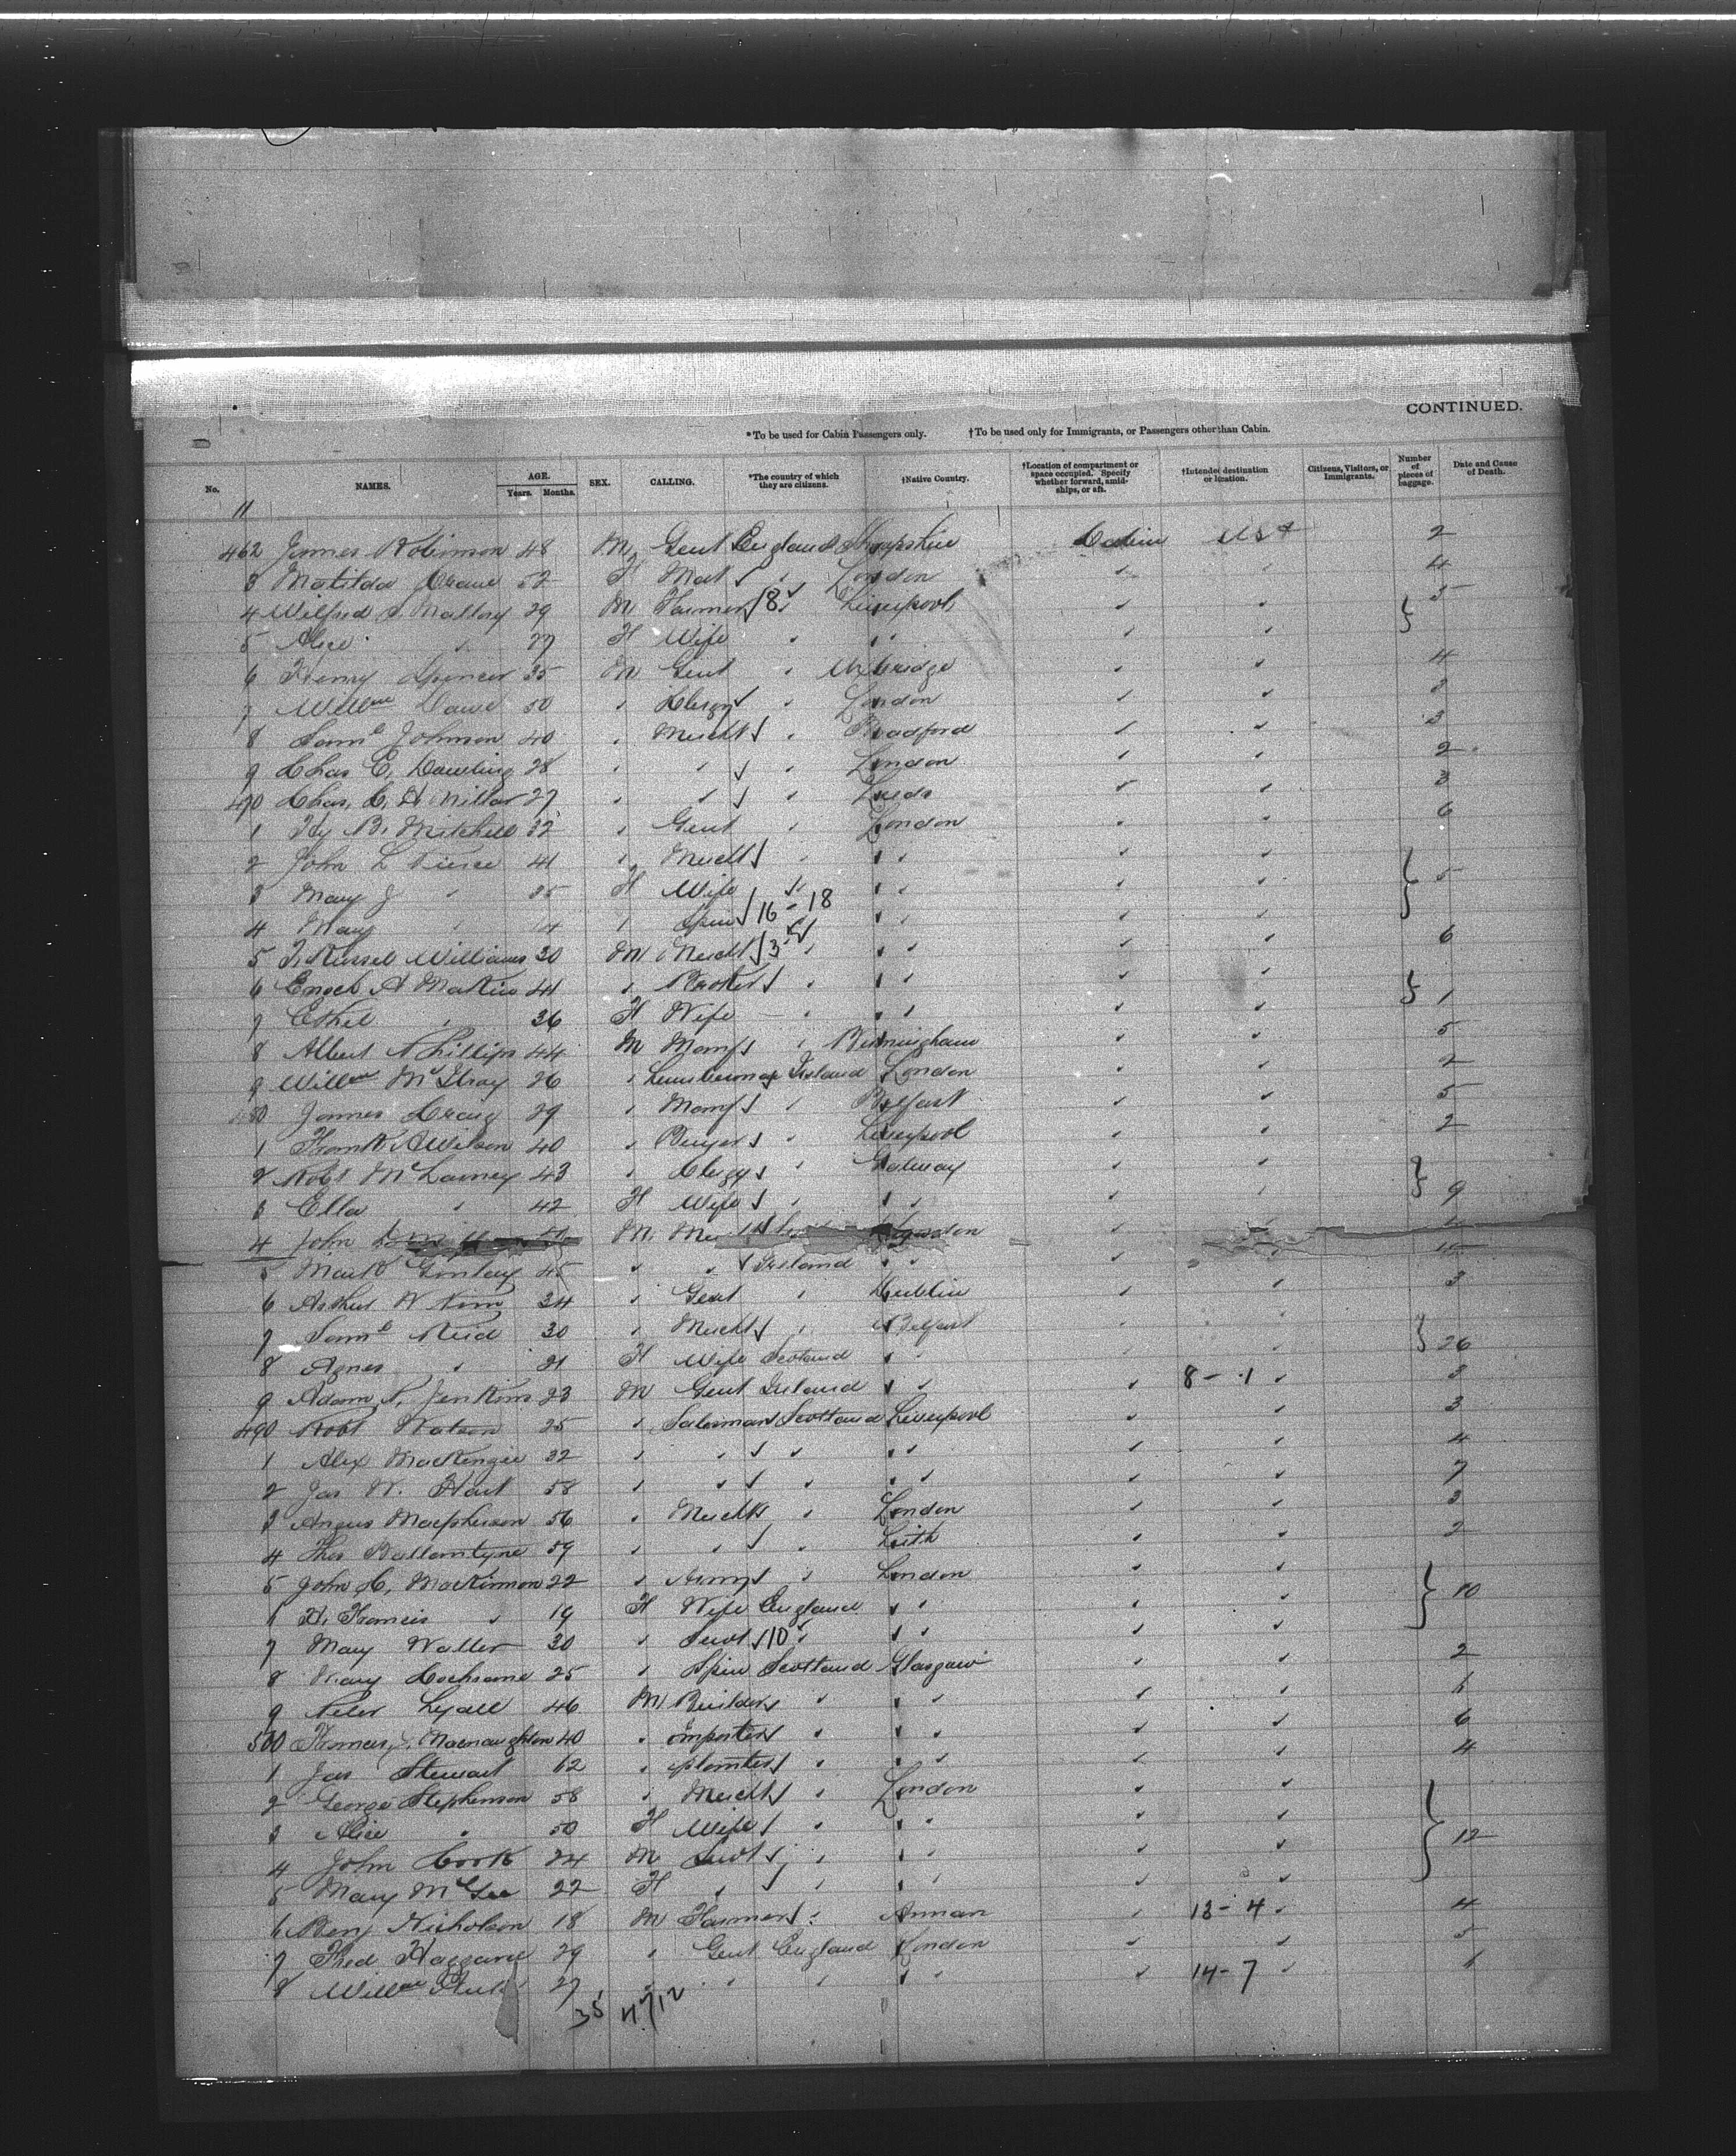 CONTINUED.
*To be used for Cabin Passengers only. †To be used only for Immigrants, or Passengers other than Cabin.
No. NAMES. AGE. Years. Months. SEX. CALLING. *The country of which they are citizens. †Native Country. †Location of compartment or space occupied. Specify whether forward, amidships, or aft. †Intended destination or location. Citizens, Visitors, or Immigrants. Number of pieces of baggage. Date and Cause of Death.
11
462 James Robinson 48 M Gent England Shropshire Cabin USA 2
3 Matilda Crane 52 F London 4
4 Wilfred Mallory 29 M Farmer 8 Liverpool 5
5 Alice " F Wife " "
6 Henry Spencer 35 M Gent " Uxbridge 4
7 Willm Dawe 50 " Clergy " London 3
8 Saml Johnson 40 " Mercht " Bradford 3
9 Chas E. Dowling 28 " " " London 2
470 Chas. C. H Millar 27 " " " Leeds 3
1 Hy B. Mitchell 32 " Gent " London 6
2 John L Pierce 41 " Mercht " " "
3 Mary J " 35 F Wife " " " 5
4 Mary " 14 " Spin 16-18 " "
5 Russel Williams 30 M Mercht " " " 6
6 Enoch A 41 " " " "
7 Ethel " 36 F Wife " " " 1
8 Albert Phillips 44 M Manf " Birmingham 5
9 Willm McIlroy 26 " Ireland London 2
480 James Craig 29 " Manf " Belfast 5
1 Frank A Wilson 40 " Buyer " Liverpool 2
2 Robt 43 " Clergy " Galway
3 Ella " 42 F Wife " " " 9
4 John M London
5 Mark 45 " " Ireland " "
6 Arthur W 34 " Gent " Dublin 3
7 Saml Reid 30 " Mercht " Belfast
8 Agnes " 21 F Wife Scotland " " 26
9 Adam S. Jenkins 23 M Gent Ireland " " 8-1 3
490 Robt Watson 25 " Salesman Scotland Liverpool 3
1 Alex MacKenzie 32 " " " " " 4
2 Jas W. Hart 58 " " " " " 7
3 Angus Macpherson 56 " Mercht " London 3
4 Thos Ballantyne 59 " " " Leith 2
5 John C. MacKinnon 22 " Army " London
6 H. Francis " 19 F Wife England " " 10
7 Mary Waller 30 " Servt 10 " " "
8 Mary Cochrane 25 " Spin Scotland Glasgow 2
9 Peter Lyall 46 M Builder " " " 1
500 Francis Macnaughton 40 " Importer " " " 6
1 Jas Stewart 62 " planter " " " 4
2 George Stephenson 58 " Mercht " London
3 Alice " 50 F Wife " " "
4 John Cook 24 M Servt " " " 12
5 Mary McGee 22 F " " " "
6 Benj Nicholson 18 M Farmer " Annan 13-4 4
7 Fred Haggard 29 " Gent England London 5
8 Willm 27 " " " " " 14-7 1
35 4/12